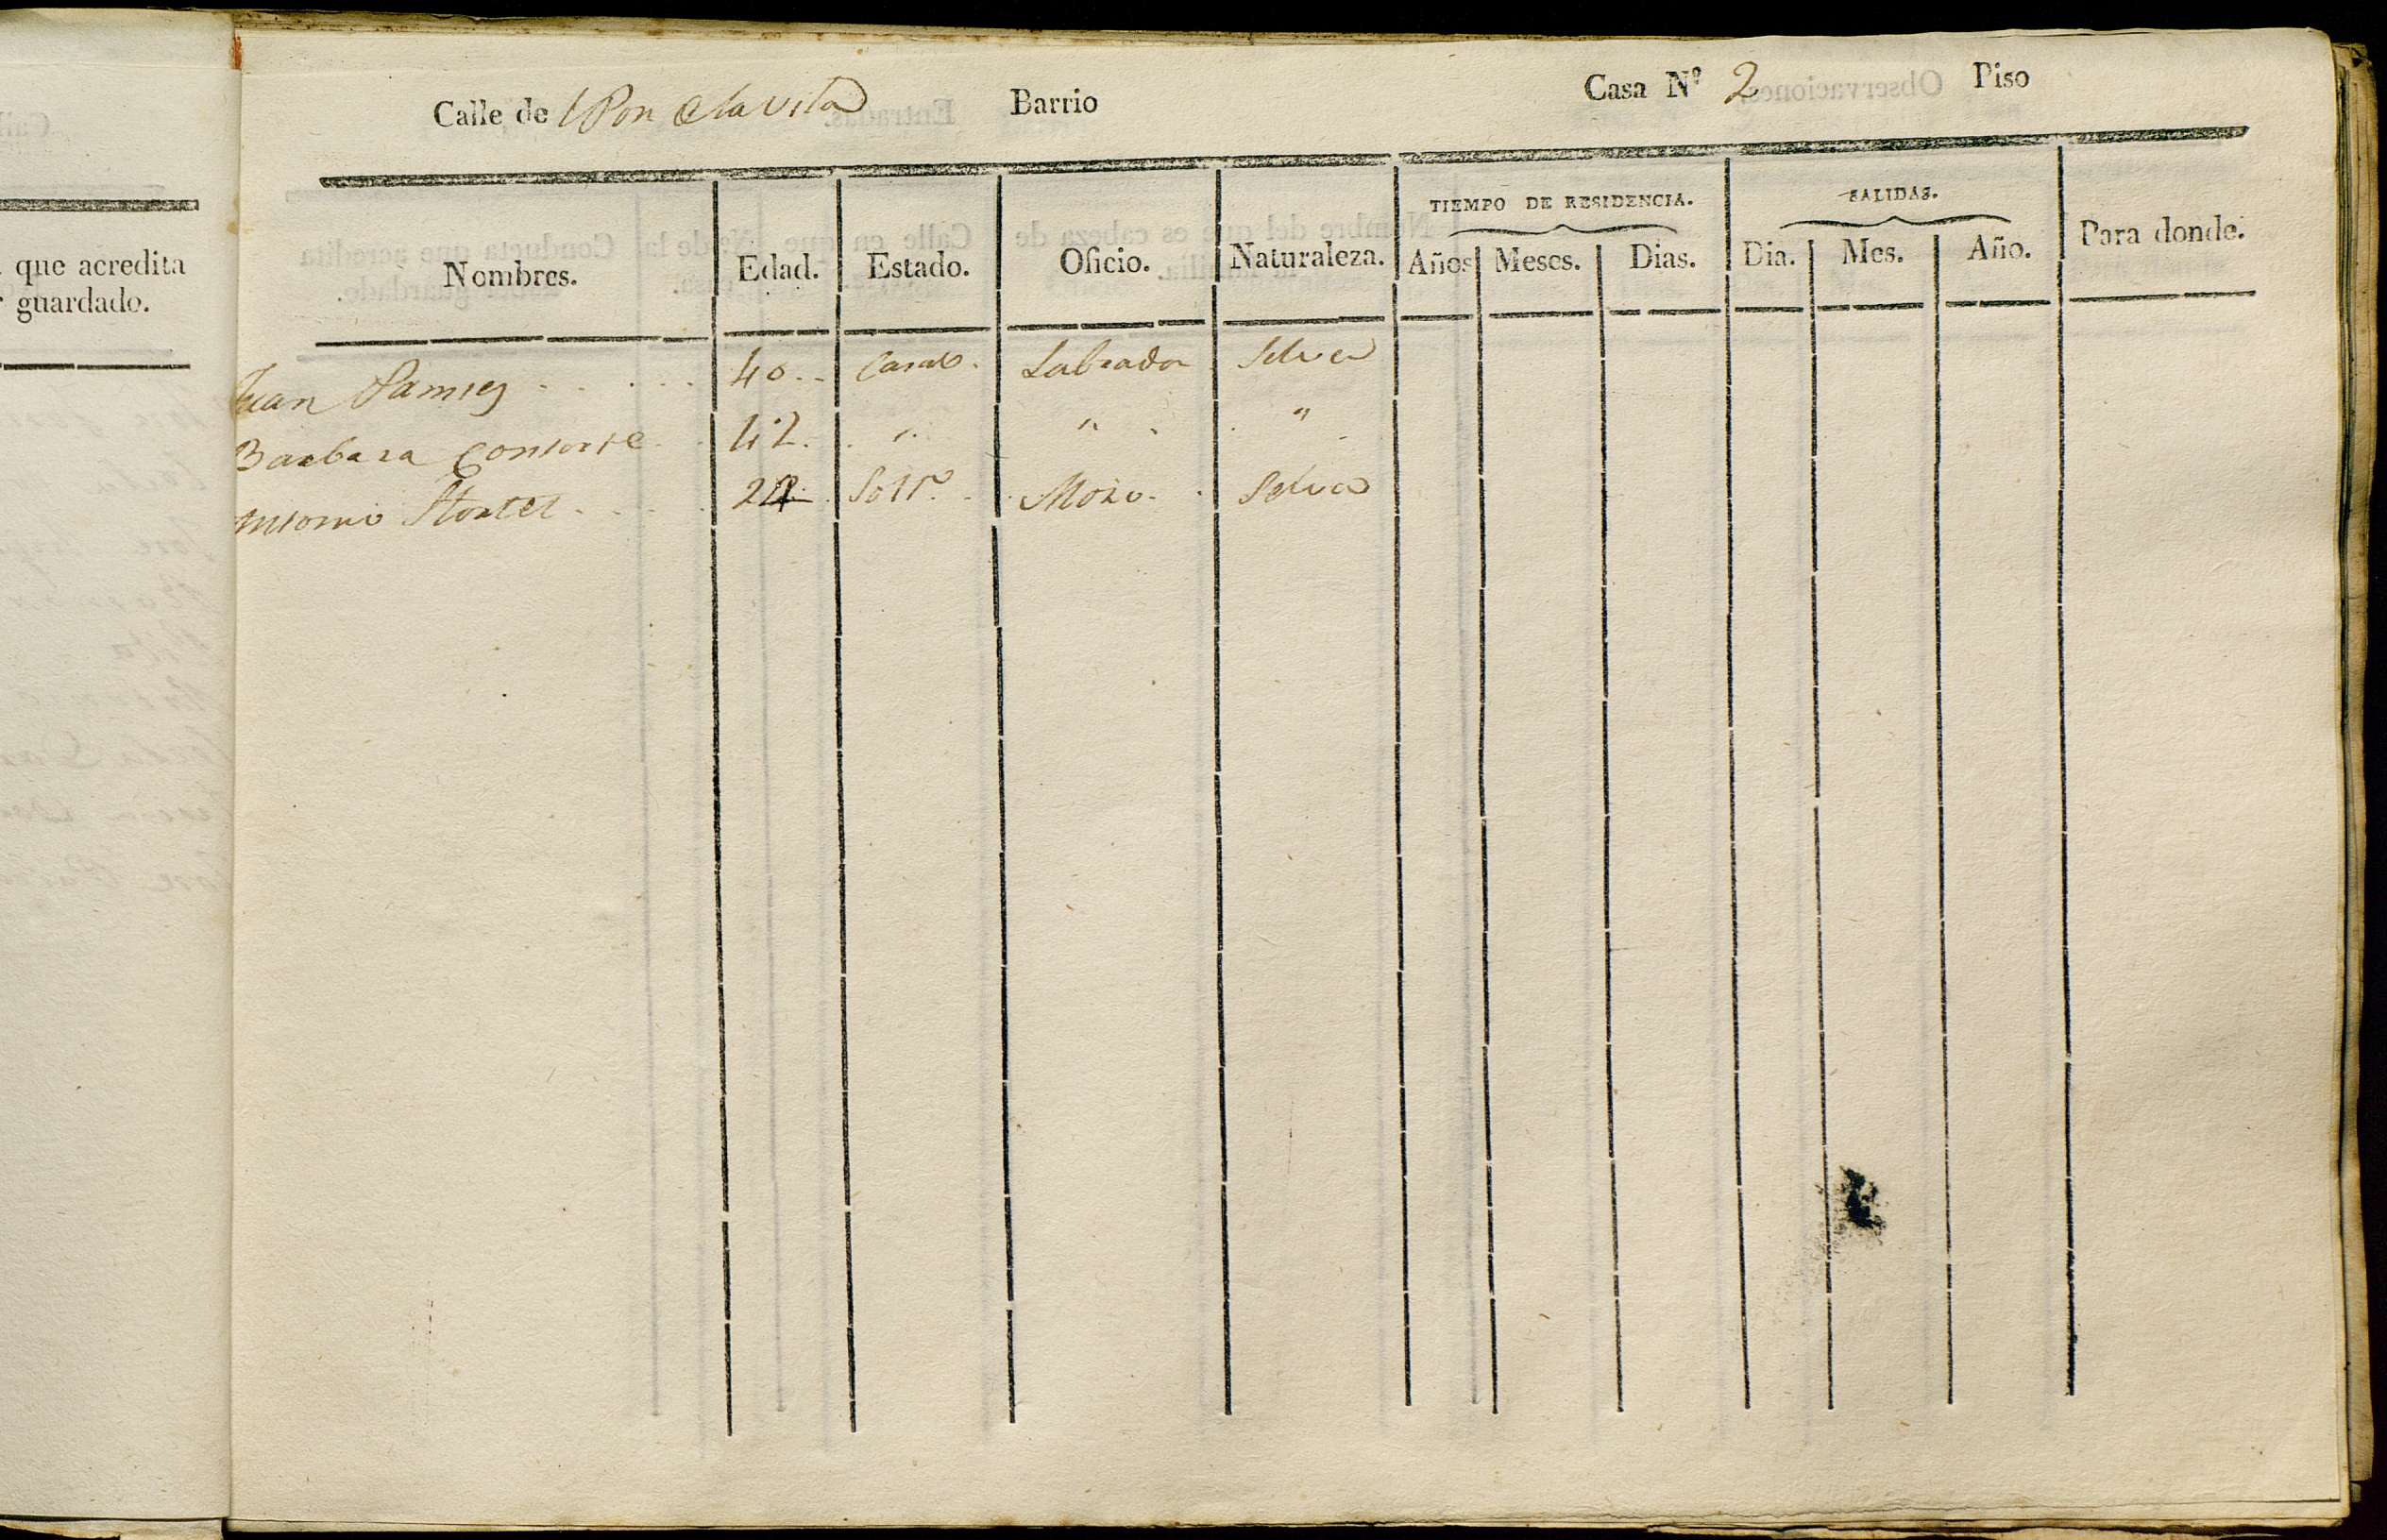 que acredita
guardado.
Calle de Barrio Casa Nº 2 Piso
Nombres. Edad. Estado. Oficio. Naturaleza. TIEMPO DE RESIDENCIA. Años Meses. Dias. SALIDAS. Dia. Mes. Año. Para donde.
Juan Pamies 40 Casado Labrador Selva
Barbara Consorte 42 " " "
Antonio Solt.º Mozo Selva